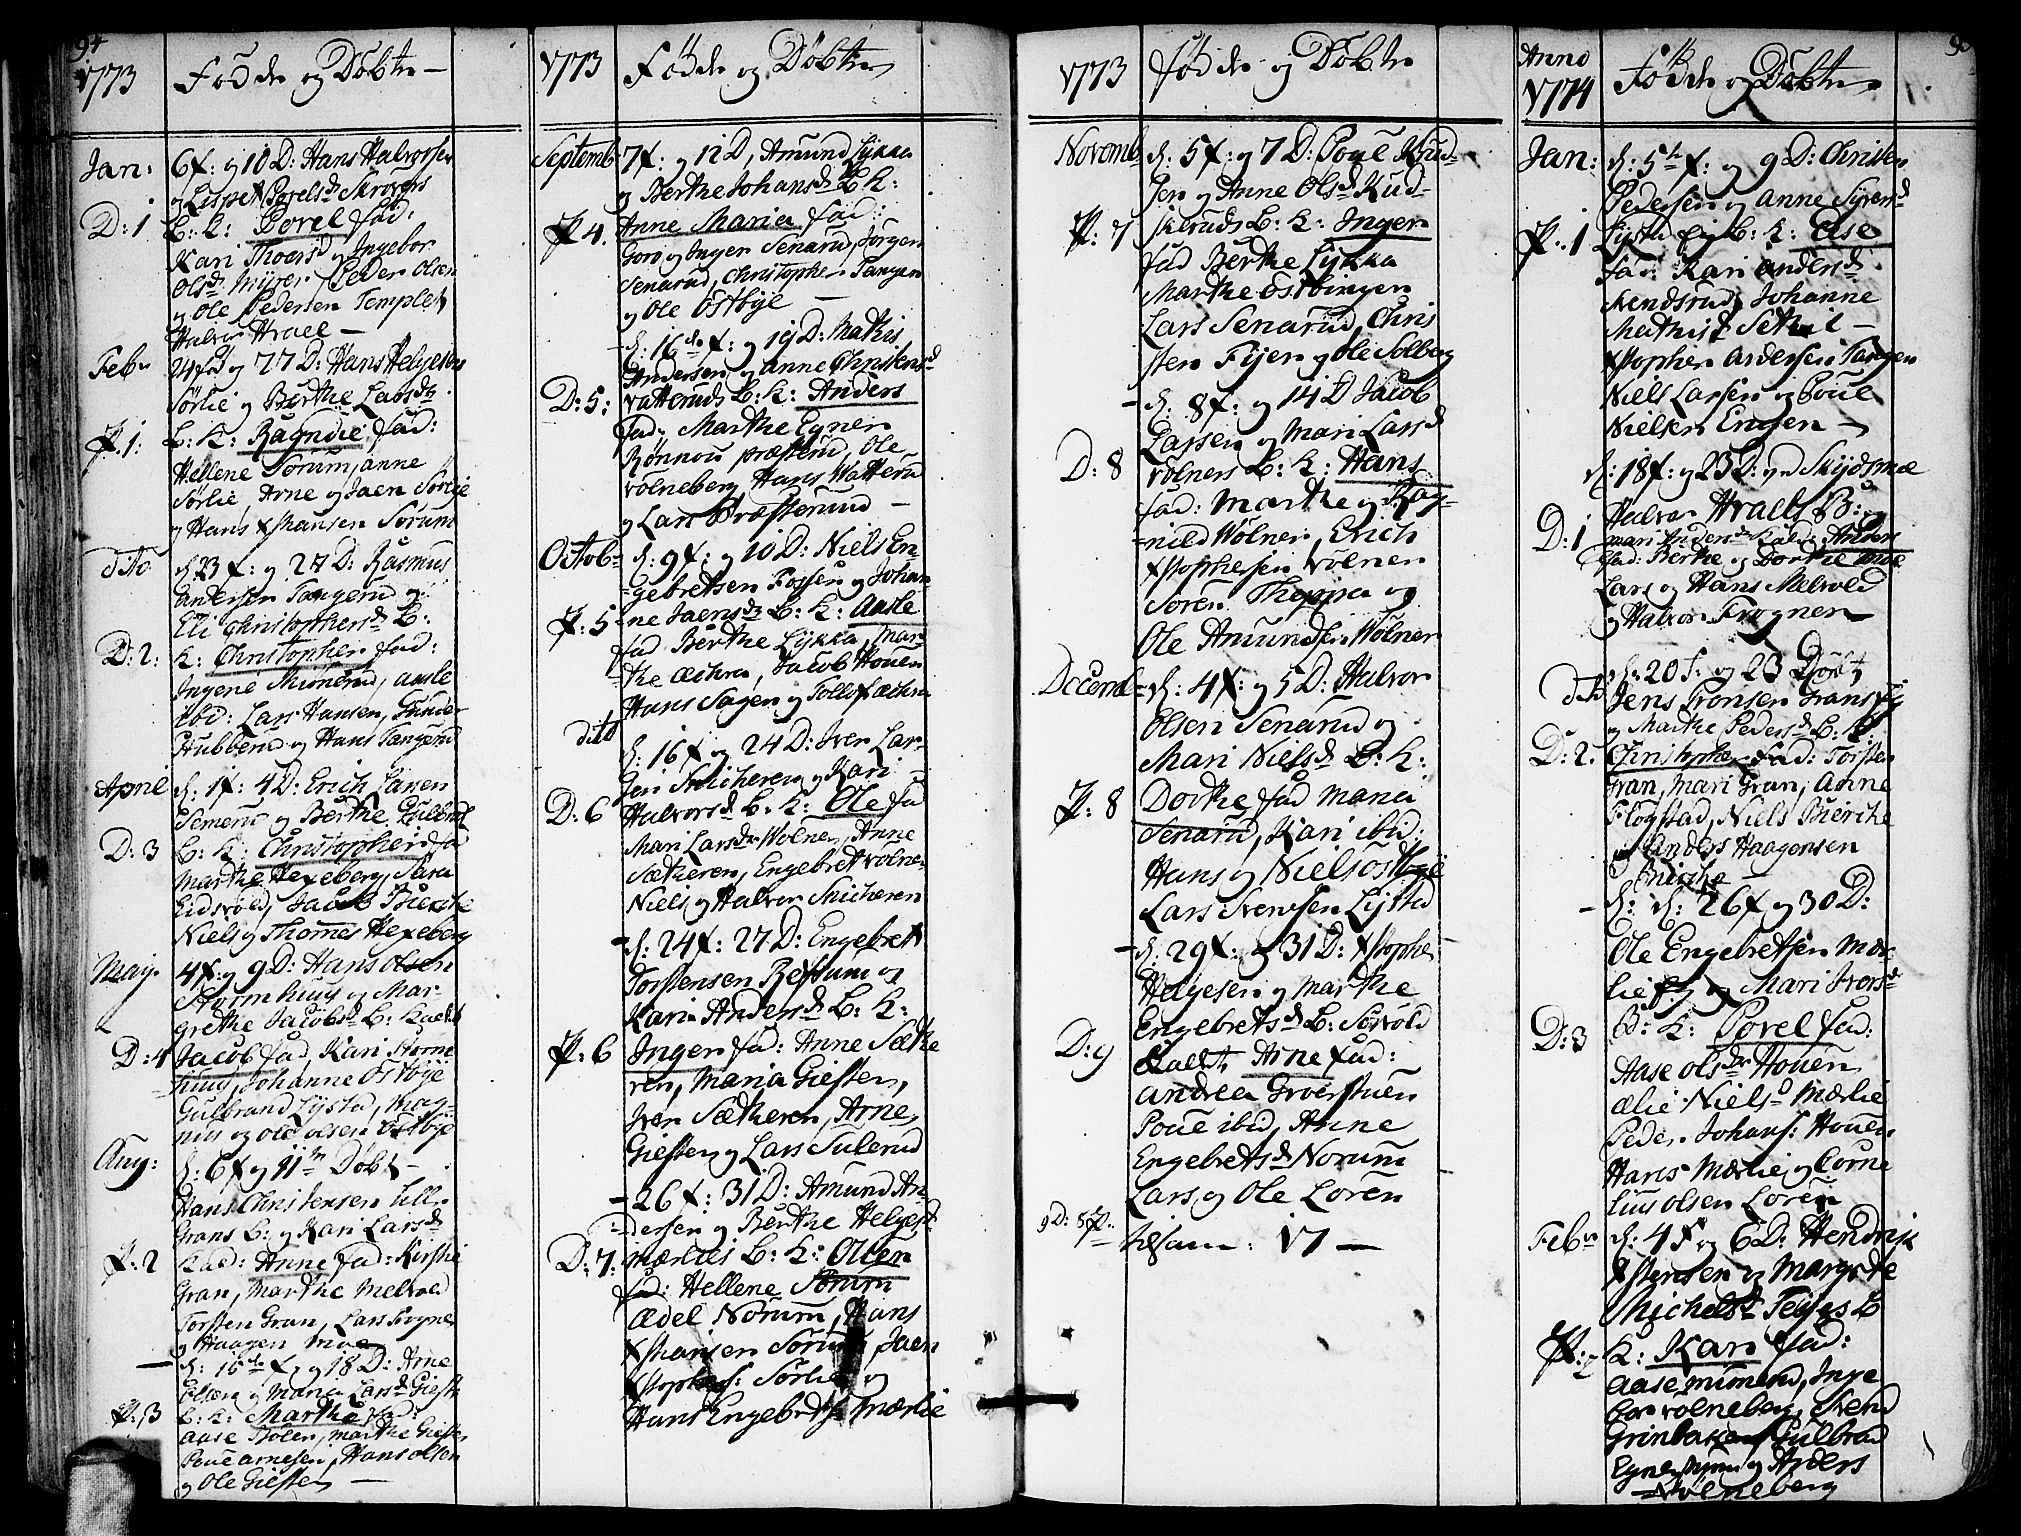 94
1773 Föde og Döbte
Jan: 6f: og 10 D: Hans Halvorsen
og Lispet Povels d. Skrovers
D: 1 B: K: Povel fad:
Kari Thoers d og Ingebor
Ols d. Myrer, Peder Olsen
og Ole Pedersen Templet
Halvor Hvael
Feb. 24 f og 27 D: Hans Helgesen
Sörlie og Berthe Lars d.
P. 1: B: K: Ragnille, fad:
Hellene Sörum, anne
Sörlie, Arne og Jaen Sörlie
og Hans Xsthansen Sörum
dito d. 23 f: og 27 D: Rasmus
Andersen Tangerud og
Eli Christophers d. B:
D: 2: K: Christopher fad:
Ingerie Mönerud, aasle
ibid: Lars Hansen, Gunder
Hubberud og Hans Tangerud
April d. 1 f: 4 D: Erich Larsen
Semerud og Berthe Gulbr.
D: 3 B: K: Christopher fad
Marthe Hexeberg, Sara
Eidsvold, Jacob Bierche
Niels og Thomes Hexeberg
May. 4 f: og 9 D: Hans Olsen
Stormhuug og Mar-
grethe Jacobs d. B: Kaldt
D: 4 Jacob fad Kari Storm
huug, Johanne Östbye
Gulbrand Lysted, Mag-
nus og Ole Olsen Östbye
Aug: d. 6 f og 11te Döbt
Hans Christensen Lill
Grans B: og Kari Lars d.
P: 2 Kald: Anne fad: Kirsti
Gran, Marthe Melvold
Torsten Gran, Lars Trogne
og Haagen Moe
d. 15de f. og 18 D: Arne
og Maria Lars d. Giest
P: 3 B: K: Marthe fad:
Aase Bölen, Marthe Giest
Poul Arnesen, Hans Olsen
og Ole Giesten
1773 Födde og Döbte
Septemb 7f: og 12 D, Amund Lykka
og Berthe Johans d. B: K:
P 4. Anne Maria fad:
Goro og Inger Senarud, Jörgen
Senarud, Christopher Tangen
og Ole Östbye
d. 16de f: og 19 D: Mathis
Andersen og Anne Christens d
Vatteruds B: K: Anders
D: 5: fad: Marthe Egner
Rönnou Præsterud, Ole
Volneberg Hans Watterud
og Lars Præsterud
Octob d. 9f: og 10 D: Niels En-
gebretsen Fossen og Johan-
ne Jaens d. B: K: Aasle
P: 5 fad Berthe Lykka, Mar-
the Æchra, Jacob Houen
Hans Sagen og Tollof Æchra
dito d. 16 f og 24 D: Iver Lar-
sen Smicheren og Kari
D: 6 Halvors d. B: K: Ole fad
Mari Lars dr Wolner, Anne
Sætheren, Engebret Volne-
Niels og Halvor Smicheren
d. 24 f: 27 D: Engebret
Torstensen Restum og
Karin Anders d. B: K:
P: 6 Inger fad: Anne Sæthe
ren, Maria Giesten,
Iver Sætheren, Arne
Giesten og Lars Sulerud
26 f: 31 D: Amund An-
dersen og Berthe Helges d
D: 7: Mærlies B: K: Olsen
fad: Hellene Sörum
Ædel Norum, Hans
Xsthansen Sörum, Jaen
Xstophers: Sörlie og
Hans Engebrets: Mærlie
1773 födde og Döbte
Novemb d. 5 f: og 7 D: Poul Knud-
sen og Anne Ols d. Kud-
P: 7 skeruds B: K: Inger
fad Berthe Lykka
Marthe Östbingen
Lars Senarud, Chris
sten Fijer og Ole Solberg
d. 8 f: og 14 D Jacob
Larsen og Mari Lars d
D: 8 Volners B: K: Hans
fad: Marthe og Rag-
nild Wölner, Erich
Xstophersen Volnen
Sören Theppa og
Ole Amundsen Wölner
Decemb d. 4 f: og 5 D: Halvor
Olsen Senarud og
Mari Niels d. B: K:
P: 8 Dorthe fad Maria
Senarud, Kari ibid:
Hans og Niels Östbye
Lars Svensen Lysted
d. 29 f: og 31 D: Xstophe
Helgesen og Marthe
Engebrets d. B: Sörvold
D: 9 Kaldt Arne fad:
Andrea Groerstuen
Poul ibid, Anne
Engebrets d. Norum
Lars og Ole Loren
9 D: 8 P: tilsam: 17
Anno
1774 Födde og Döbte
Jan: d. 5te f: og 9 D: Christen
Pedersen og Anne Syvers d
P: 1 Lysted Eje B: K: Else
fad: Kari Anders d.
Svendsrud, Johanne
Mathis d Sethil
Xstopher Andersen Tangen
Niels Larsen og Poul
Nielsen Engen
d. 18 f: og 23 D: Skydsmæ
D: 1 Halvor Hvaels B: og
Mari Anders d. Kald: Anders
fad: Berthe og Dorthe Moe
Lars og Hans Melvold
og Halvor Trogner
dito d. 20 f. og 23 Döbt
Jens Tronsen Grans ej
og Marthe Peders d. B: K:
D: 2. Christopher fad: Torsten
Gran, Mari Gran, Anne
Flogstad, Niels Bierche
og Anders Haagensen
Bierche
d: 26 f og 30 D:
Ole Engebretsen Mær-
lie og Mari Ivers d
D: 3 B: K: Povel fad:
Aase Ols dr Houen
Ælie Niels d Mærlie
Peder Johans: Houen
Hans Mærlie og Corne
lius Olsen Loren
Feb. d: 4 f og 6 D: Hendrik
Xstensen og Margrete
Michels d. Teiges B
P: 2 K: Kari fad:
Aase Mimerud, Inge
bor Volneberg, Svend
Grinbaken Gulbrad
Egner og Anders
Wolneberg